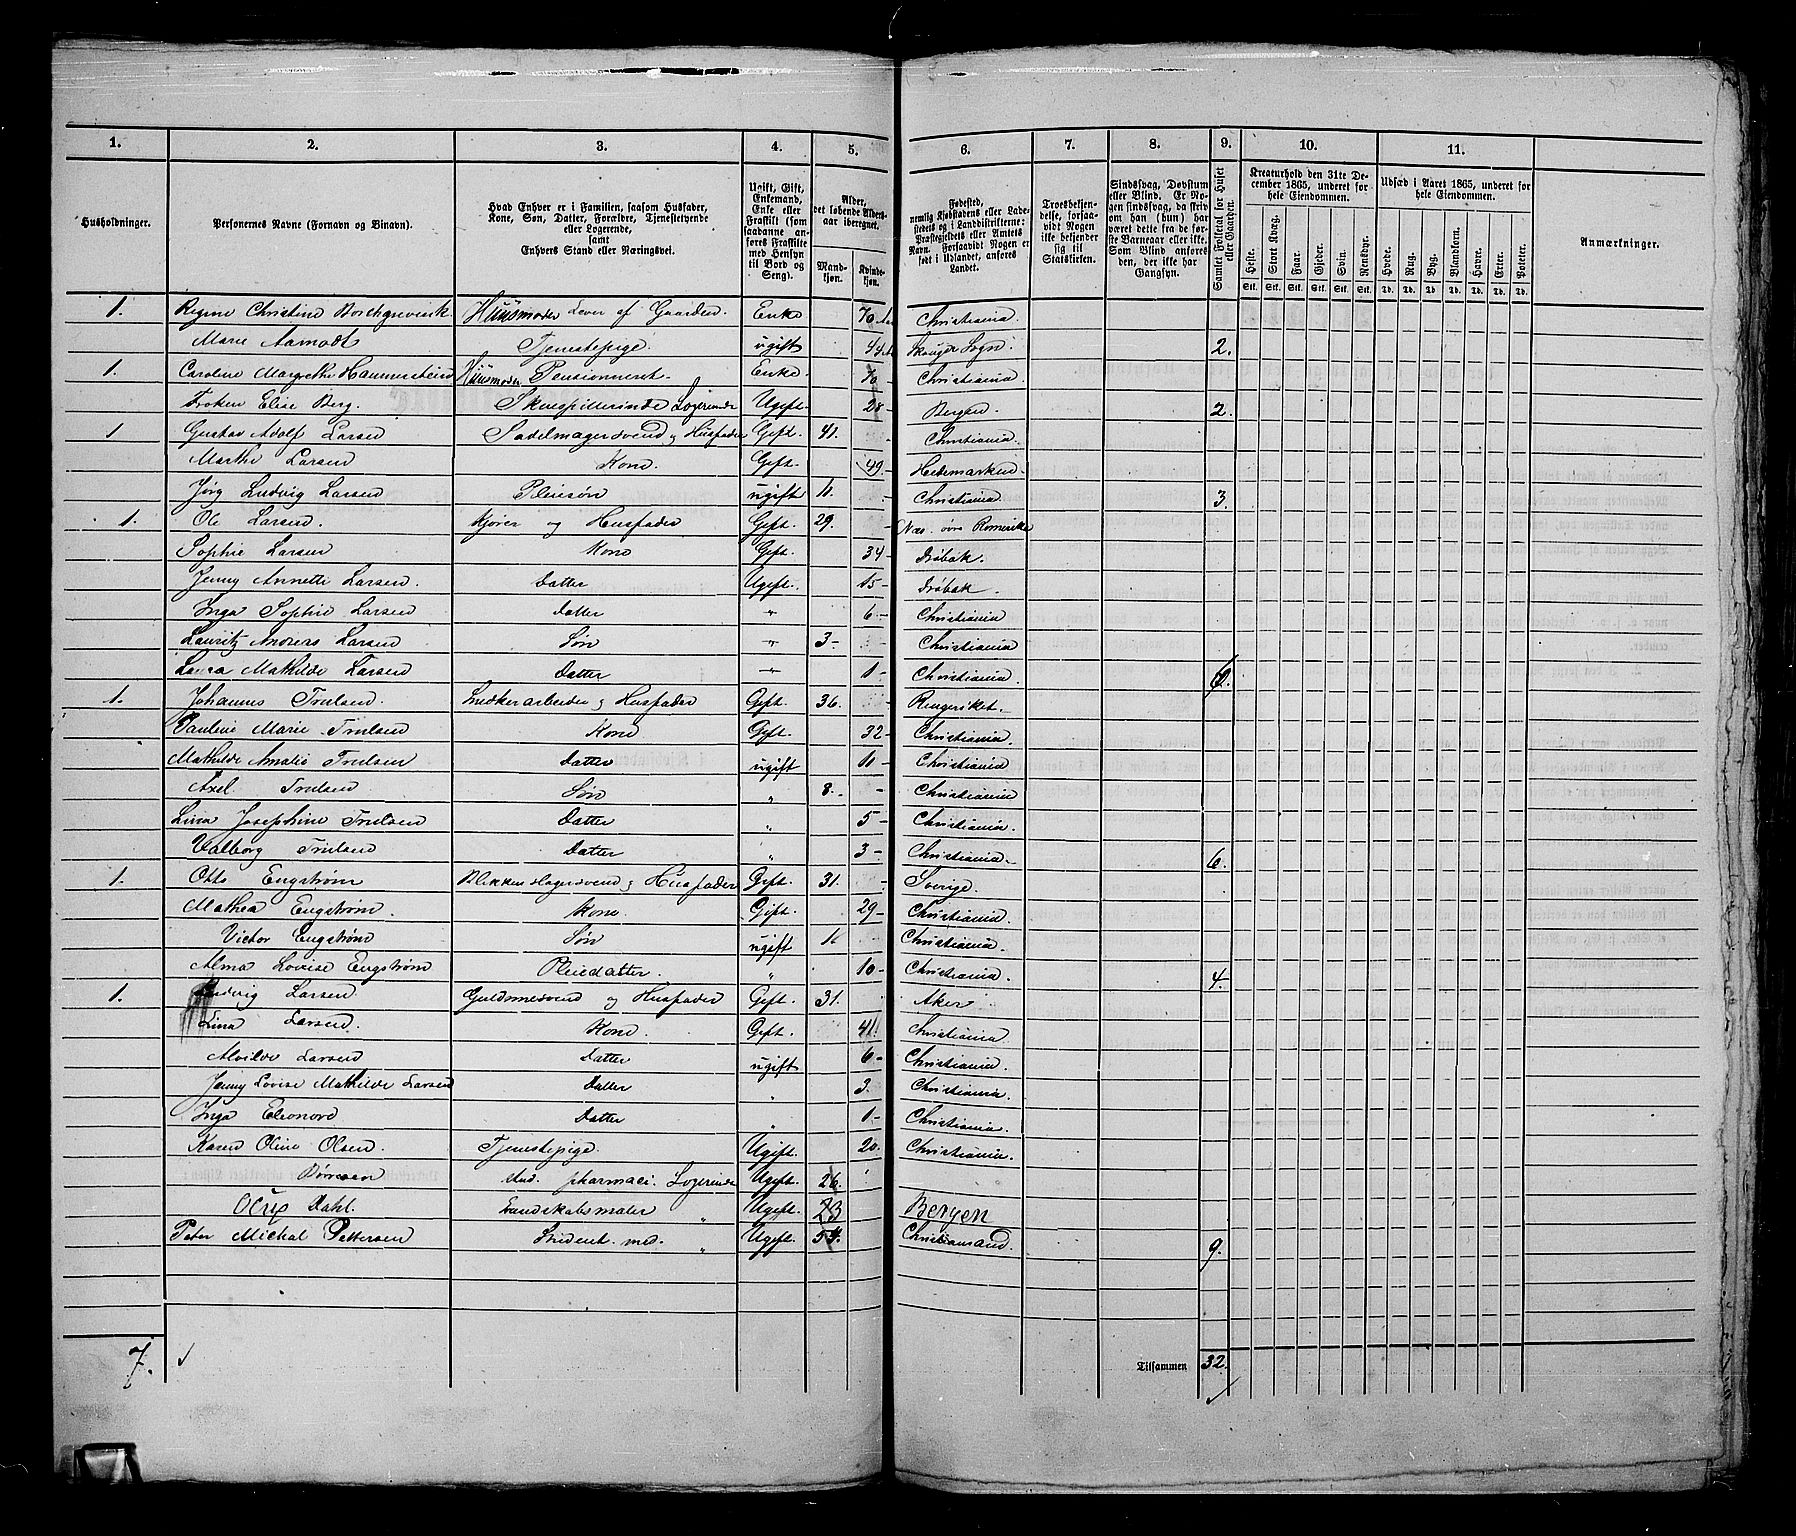 1. 2. 3. 4. 5. 6. 7. 8. 9. 10. 11.
Husholdninger.
Personernes Navne (Fornavn og Binavn).
Hvad Enhver er i Familien, saasom Husfader, Kone, Søn, Datter, Forældre, Tjenestetyende eller Logerende, samt Enhvers Stand eller Næringsvei.
Ugift, Gift, Enkemand, Enke eller Fraskilt (som saadanne anføres Fraskilte med Hensyn til Bord og Seng).
Alder, det løbende Aldersaar iberegnet.
Mandkjøn. Kvindekjøn.
Fødested, nemlig Kjøbstadens eller Ladestedets og i Landdistrikterne: Præstegjeldets eller Amtets Navn. Forsaavidt Nogen er født i Udlandet, anføres Landet.
Troesbekjendelse, forsaavidt Nogen ikke bekjender sig til Statskirken.
Sindssvag, Døvstum eller Blind. Er Nogen sindssvag, da skrives om han (hun) har været dette fra de første Barneaar eller ikke. Som Blind anføres den, der ikke har Gangsyn.
Samlet Folketal for Huset eller Gaarden.
Kreaturhold den 31te December 1865, underet for hele Eiendommen.
Heste. Stort Kvæg. Faar. Gjeder. Svin. Rensdyr.
Stk. Stk. Stk. Stk. Stk. Stk.
Udsæd i Aaret 1865, underet for hele Eiendommen.
Hvede. Rug. Byg. Blandkorn. Havre. Erter. Poteter.
Td. Td. Td. Td. Td. Td. Td.
Anmærkninger.
1. Regine Christine Borchgrevink Huusmoder Lever af Gaarden. Enke 70 Christiania.
Marie Aamodt Tjenestepige. ugift 44 Skouger Sogn. 2.
1. Caroline Margrethe Hammerstein Huusmoder Pensionneret. Enke 70 - Christiania.
Frøken Elise Berg. Skuespillerinde Logerende Ugift. 28 - Bergen. 2.
1 Gustav Adolf Larsen Sadelmagersvend og Husfader Gift. 41. Christiania.
Marthe Larsen Kone. Gift. 49. Hedemarken.
Jørg Ludvig Larsen Pleiesøn ugift 11. Christiania. 3.
1. Ole Larsen. Kjører og Husfader Gift. 29. Næs. øvre Romerike
Sophie Larsen Kone Gift. 34 - Drøbak.
Jenny Annette Larsen. Datter Ugift. 15 - Drøbak.
Inga Sophie Larsen Datter " 6 - Christiania
Lauritz Anders Larsen Søn " 3 - Christiania
Laura Mathilde Larsen Datter " 1 - Christiania. 6.
1. Johannes Trulsen. Snedkerarbeider og Husfader Gift. 36. Ringeriket.
Pauline Marie Trulsen Kone Gift. 32 - Christiania.
Mathilde Amalie Trulsen Datter ugift 11 - Christiania
Axel Trulsen Søn " 8. - Christiania
Lina Josephine Trulsen Datter " 5 - Christiania.
Valborg Trulsen Datter " 3 - Christiania. 6.
1. Otto Engstrøm Blikkenslagersvend og Husfader Gift. 31. Sverige.
Mathea Engstrøm. Kone. Gift. 29 - Christiania.
Victor Engstrøm Søn ugift Christiania.
Alma Lovise Engstrøm Pleiedatter. " 10 - Christiania. 4.
1. Ludvig Larsen. Guldsmesvend og Husfader Gift. 31. Aker
Lina Larsen. Kone. Gift. 41. Christiania.
Alvilde Larsen Datter ugift 6 - Christiania.
Jenny Lovise Mathilde Larsen Datter " 3. Christiania.
Inga Eleonore Datter " 1 - Christiania.
Karen Oline Olsen. Tjenestepige. Ugift. 20. Christiania.
Stud. pharmaci. Logerende Ugift. 26.
Oluf Dahl. Landskabsmaler " Ugift. 23 Bergen
Peter Michal Pettersen Student. med. " Ugift. 54. Christiansand. 9.
7. Tilsammen 32.